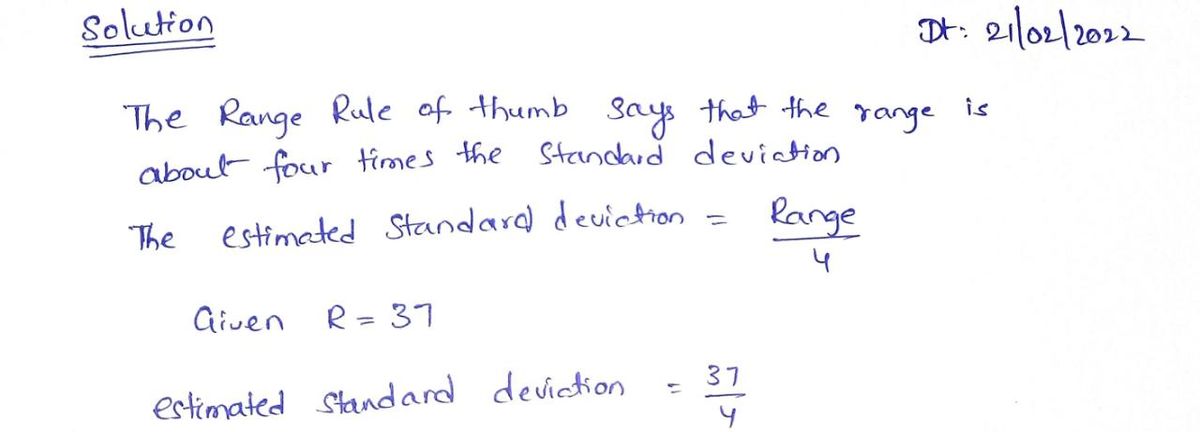 Solution Dt: 21/02/2022
The Range Rule of thumb says that the range is
about four times the standard deviation
The estimated standard deviation = Range/4
Given R = 37
estimated standard deviation = 37/4